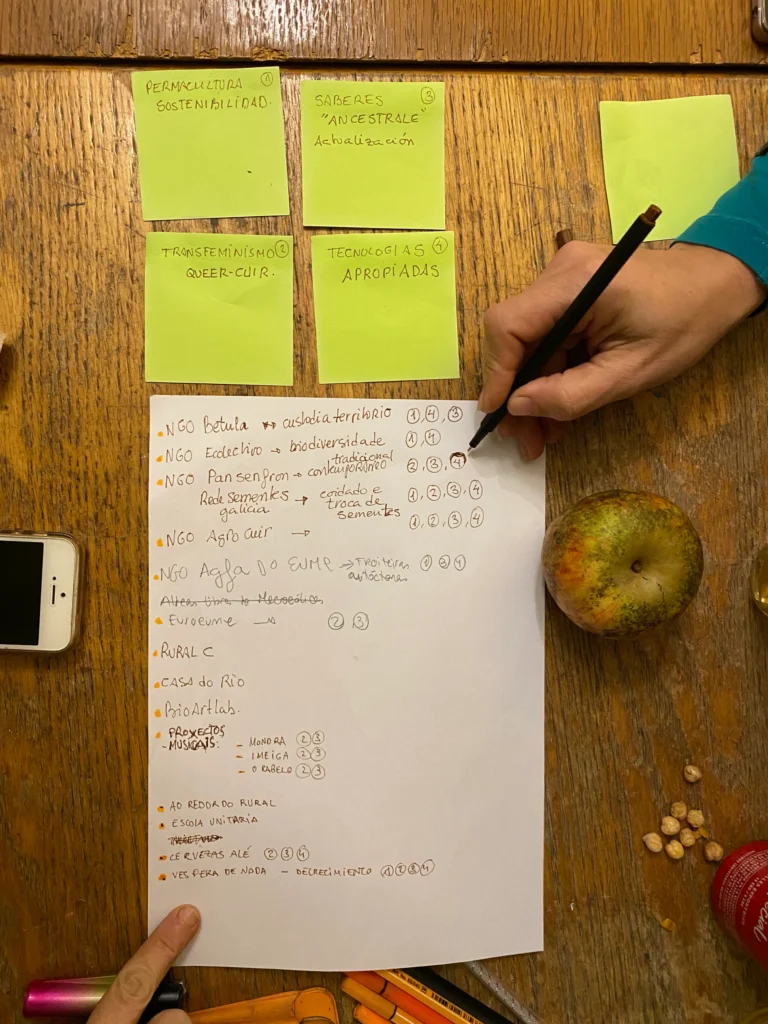 PERMACULTURA ①
SOSTENIBILIDAD.
SABERES ③
"ANCESTRALE"
Actualización
TRANSFEMINISMO ②
QUEER-CUIR.
TECNOLOGIAS ④
APROPIADAS
NGO Betula → custodia territorio ①, ④, ③
NGO Ecolectivo → biodiversidade ①, ④
tradicional
NGO Pan sen fron → contemporáneo ②, ③, ④
Rede Sementes → coidado e ①, ②, ③, ④
galicia troca de
sementes
NGO Agro Cuir → ①, ②, ③, ④
NGO Agfa DO EUME → FROITEIRAS ① ③ ④
autóctones
Euroeume → ② ③
RURAL C
CASA do Rio
BioArtlab.
PROXECTOS
- MUSICAIS: - MONDRA ② ③
- IMEIGA ② ③
- O RABELO ② ③
AO REDOR DO RURAL
ESCOLA UNITARIA
CERVEZAS ALÉ ② ③ ④
VESPERA DE NADA - DECRECIMENTO ① ② ③ ④